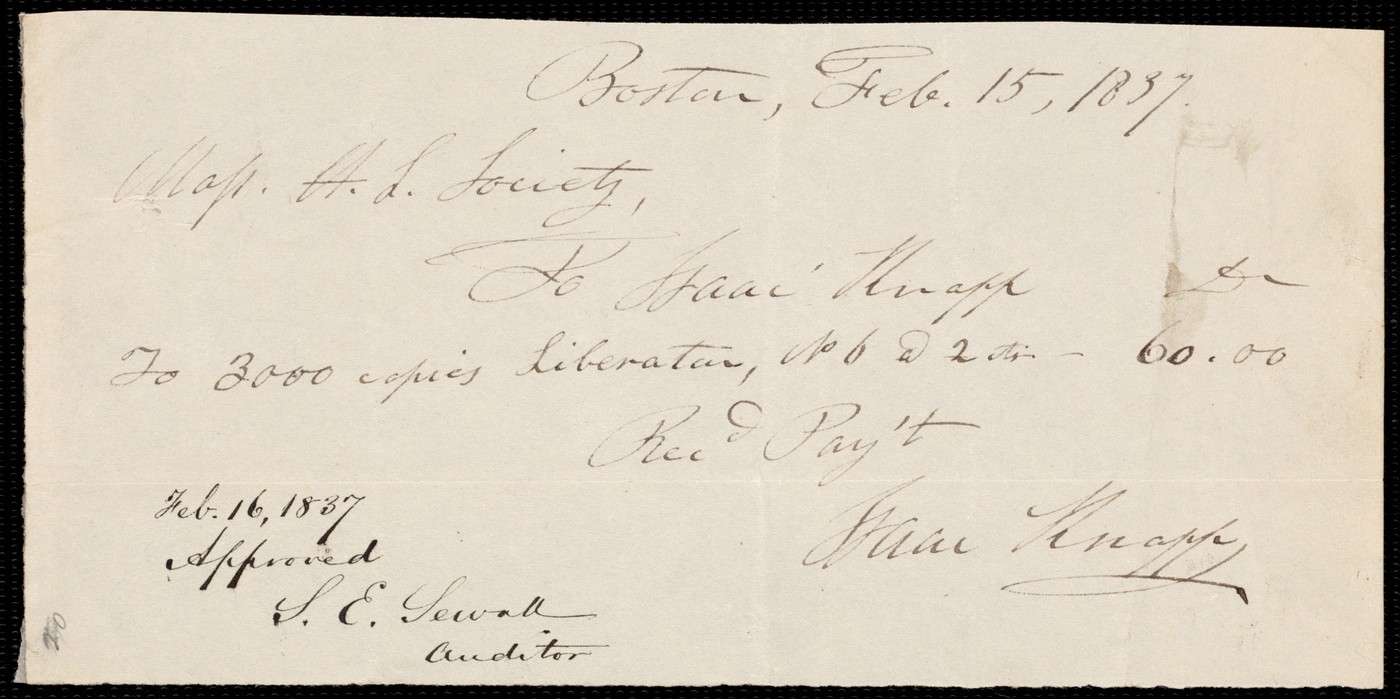 Boston, Feb. 15, 1837.
Mass. A. S. Society,
To Isaac Knapp Dr
To 3000 copies Liberator, No 6 @ 2 cts - 60.00
Recd Pay't
Isaac Knapp
Feb. 16, 1837
Approved
S. E. Sewall
Auditor